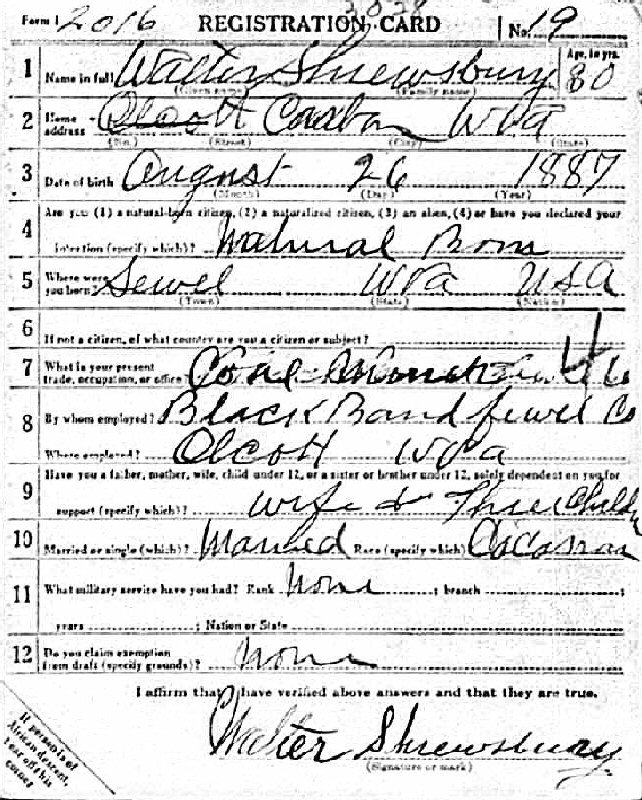 Form 1 2016 3038 REGISTRATION CARD No. 19
1 Name in full Walter Shrewsbury Age, in yrs. 30
(Given name) (Family name)
2 Home address Olcott Carbon W Va
(No.) (Street) (City) (State)
3 Date of birth August 26 1887
(Month) (Day) (Year)
4 Are you (1) a natural-born citizen, (2) a naturalized citizen, (3) an alien, (4) or have you declared your
intention (specify which)? Natural Born
5 Where were you born? Sewel W Va USA
(Town) (State) (Nation)
6 If not a citizen, of what country are you a citizen or subject?
7 What is your present trade, occupation, or office? Coal
8 By whom employed? Black Band Jewel Co
Where employed? Olcott W Va
9 Have you a father, mother, wife, child under 12, or a sister or brother under 12, solely dependent on you for
support (specify which)? Wife & Three Children
10 Married or single (which)? Married Race (specify which) Cacasian
11 What military service have you had? Rank None ; branch ;
years ; Nation or State
12 Do you claim exemption from draft (specify grounds)? None
I affirm that I have verified above answers and that they are true.
Walter Shrewsbury
(Signature or mark)
If person is of
African descent,
tear off this
corner